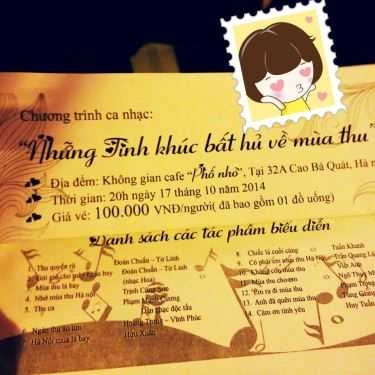 Chương trình ca nhạc:
"Những Tình khúc bất hủ về mùa thu"
Địa đểm: Không gian cafe "Phố nhỏ", Tại 32A Cao Bá Quát, Hà
Thời gian: 20h ngày 17 tháng 10 năm 2014
Giá vé: 100.000 VNĐ/người( đã bao gồm 01 đồ uống)
Danh sách các tác phẩm biểu diễn
1. Thu quyến rũ
Đoàn Chuẩn - Từ Linh
2. Gửi gió cho mây ngàn bay
Đoàn Chuẩn - Từ Linh
3. Mùa lá bay
(nhạc Hoa)
4. Nhớ mùa thu Hà nội
Trịnh Công Sơn
5. Thu ca
Phạm Mạnh Cương
Dân nhạc độc tấu
Ngày thu
Hoàng Thi Vĩnh Phúc
Hà Nội mùa lá bay
Hữu Xuân
8. Chiếc lá cuối cùng
Tuấn Khanh
9. Có phải em mùa thu Hà Nội
Trần Quang
10. Không còn mùa thu
Việt Anh
11. Mùa thu cho em
Ngô Thụy
12. Em ra đi mùa thu
Phạm Trọng
13. Anh đã quên mùa thu
Tùng Giang
14. Cảm ơn tình yêu
Huy Tuấn